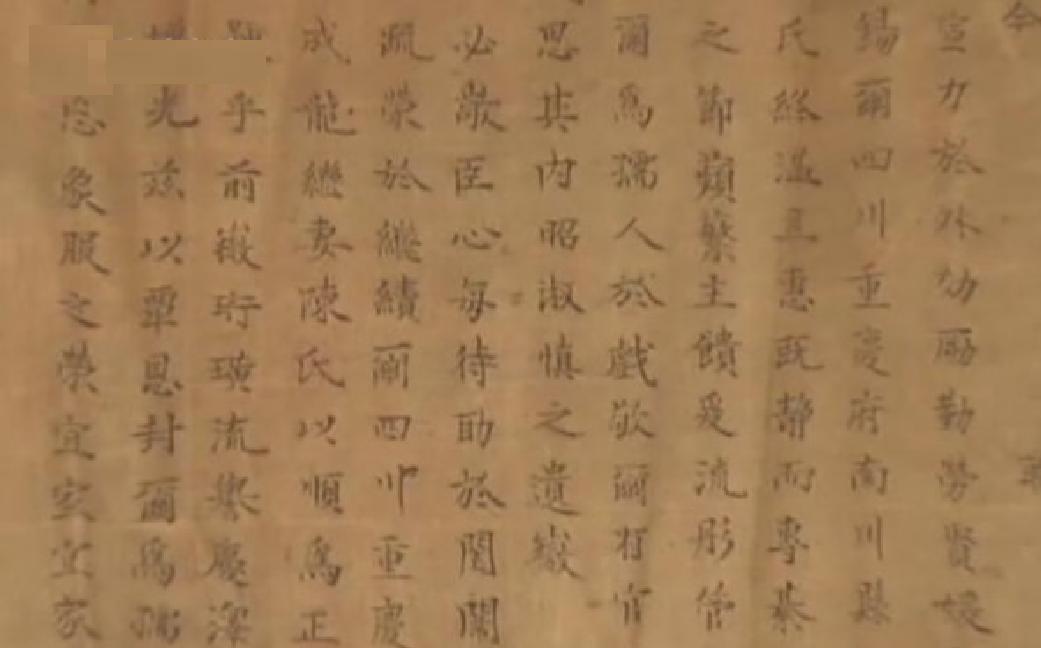 宣力於外効勵勤勞賢媛
錫爾四川重慶府南川縣
氏終溫且惠既靜而專綦
之節蘋蘩主饋爰流彤管
爾為孺人於戲敬爾有官
思其內昭淑慎之遺徽
必敬臣心每待助於閨闈
疏榮於繼續爾四川重慶
成龍繼妻陳氏以順為正
乎前徽珩璜流絮慶深
光茲以覃恩封爾為孺
恩象服之榮宜室宜家